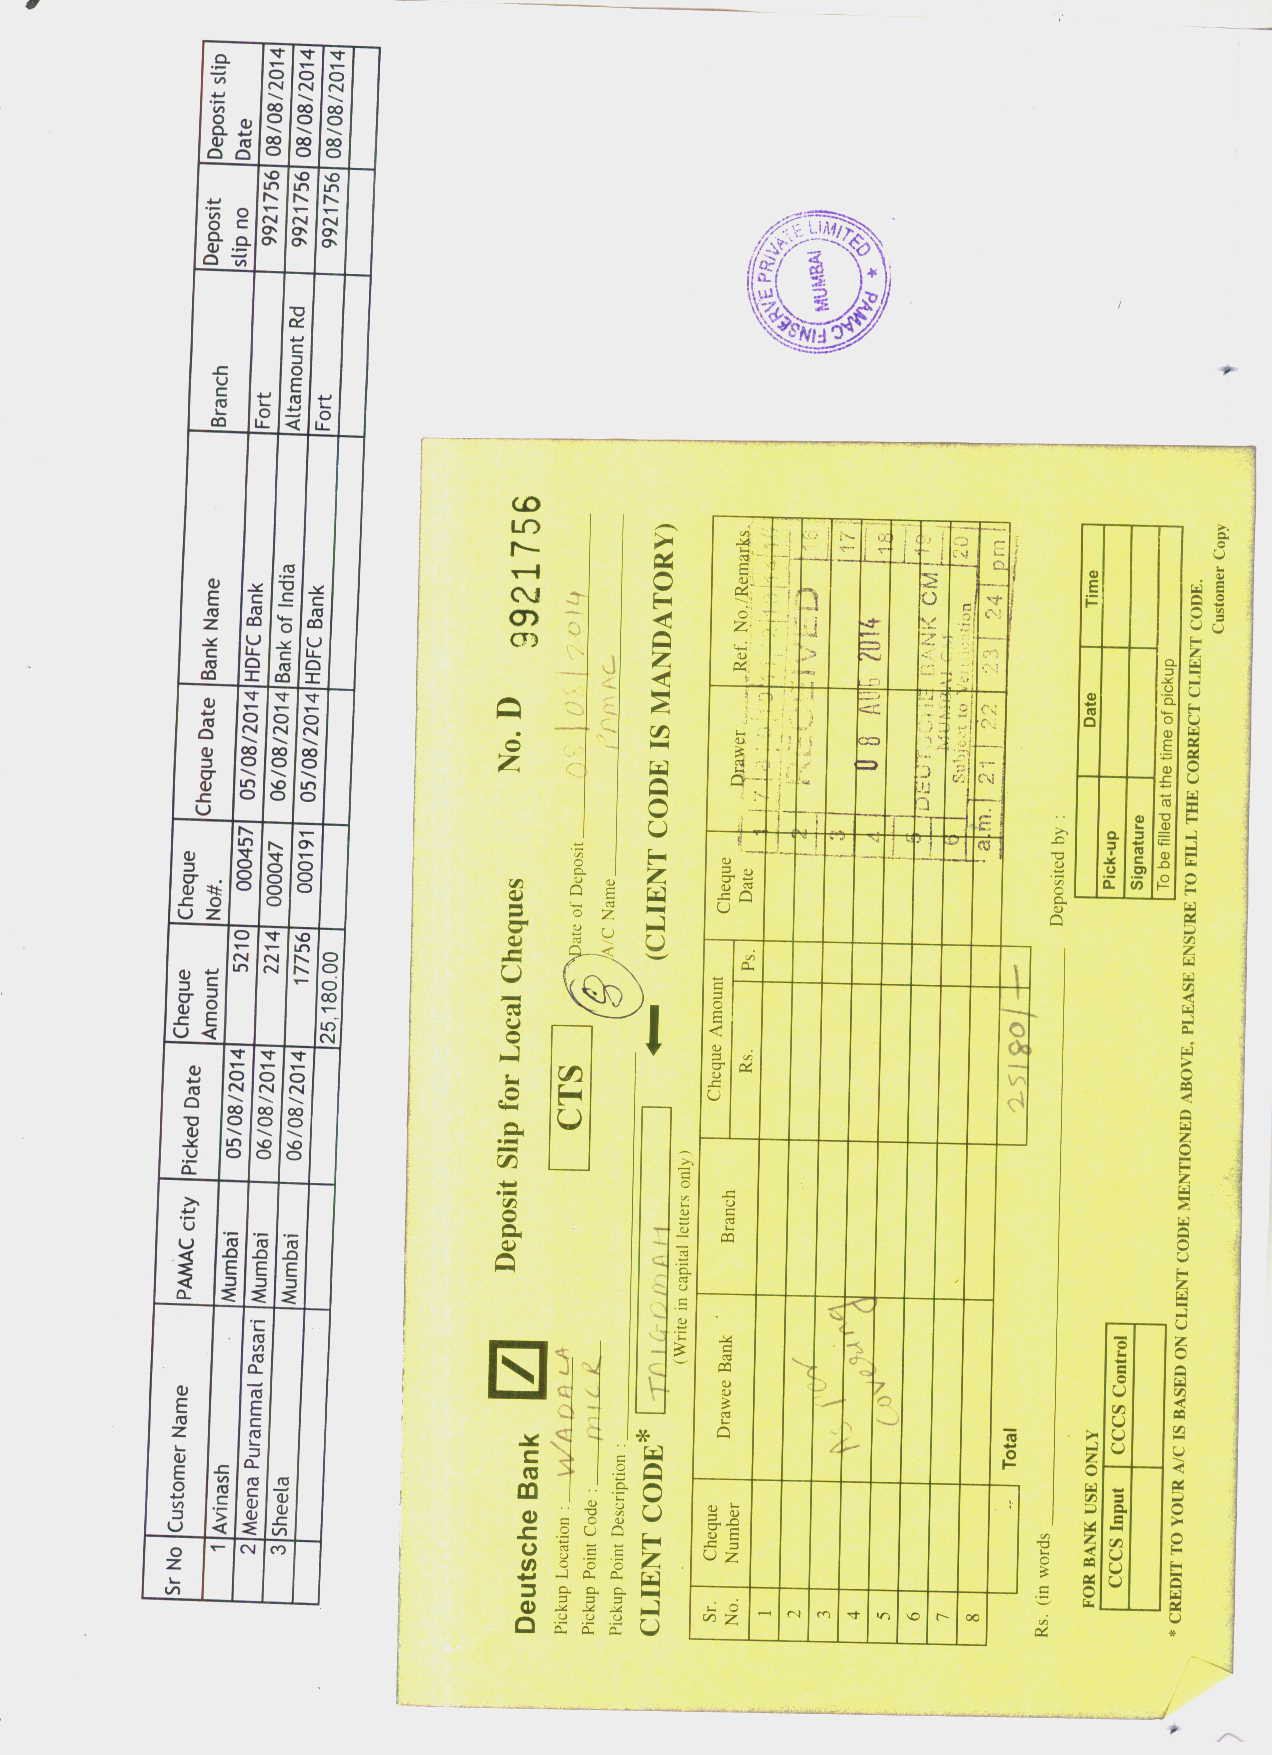 Sr No Customer Name PAMAC city Picked Date Cheque Amount Cheque No#. Cheque Date Bank Name Branch Deposit slip no Deposit slip Date
1 Avinash Mumbai 05/08/2014 5210 000457 05/08/2014 HDFC Bank Fort 9921756 08/08/2014
2 Meena Puranmal Pasari Mumbai 06/08/2014 2214 000047 06/08/2014 Bank of India Altamount Rd 9921756 08/08/2014
3 Sheela Mumbai 06/08/2014 17756 000191 05/08/2014 HDFC Bank Fort 9921756 08/08/2014
25,180.00
PAMAC FINSERVE PRIVATE LIMITED ★
MUMBAI
Deutsche Bank Deposit Slip for Local Cheques No. D 9921756
Pickup Location : WADALA CTS Date of Deposit 08/08/2014
Pickup Point Code : MICR A/C Name PAMAC
Pickup Point Description :
CLIENT CODE* (CLIENT CODE IS MANDATORY)
(Write in capital letters only)
Sr. No. Cheque Number Drawee Bank Branch Cheque Amount Rs. Ps. Cheque Date Drawer Ref. No./Remarks.
1
2
3
4
5
6
7
8
As per
covering
RECEIVED
08 AUG 2014
DEUTSCHE BANK CM
MUMBAI
Subject to Verification
1 2 3 4 5 6
16 17 18 19 20
a.m. 21 22 23 24 pm
Total 25180/-
Rs. (in words Deposited by :
FOR BANK USE ONLY
CCCS Input CCCS Control
Date Time
Pick-up
Signature
To be filled at the time of pickup
* CREDIT TO YOUR A/C IS BASED ON CLIENT CODE MENTIONED ABOVE, PLEASE ENSURE TO FILL THE CORRECT CLIENT CODE.
Customer Copy